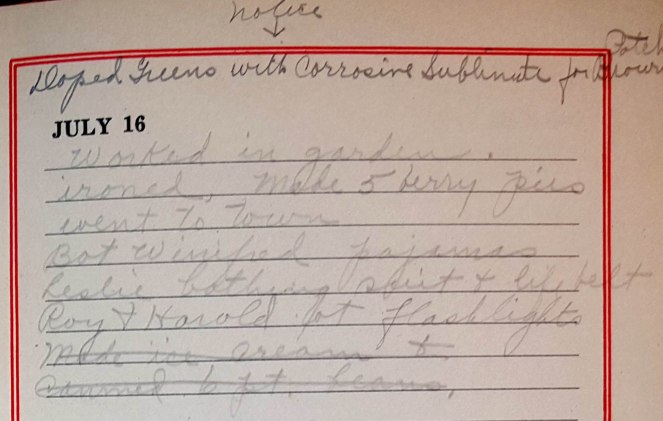 Notice
Doped Greens with Corrosive Sublimate for Brown Patch
JULY 16
Worked in garden.
ironed, Made 5 berry pies
went to town
Bot Winifred pajamas
Leslie bathing suit & life belt
Roy & Harold got flashlights
Made ice cream &
Canned 6 pt. beans.